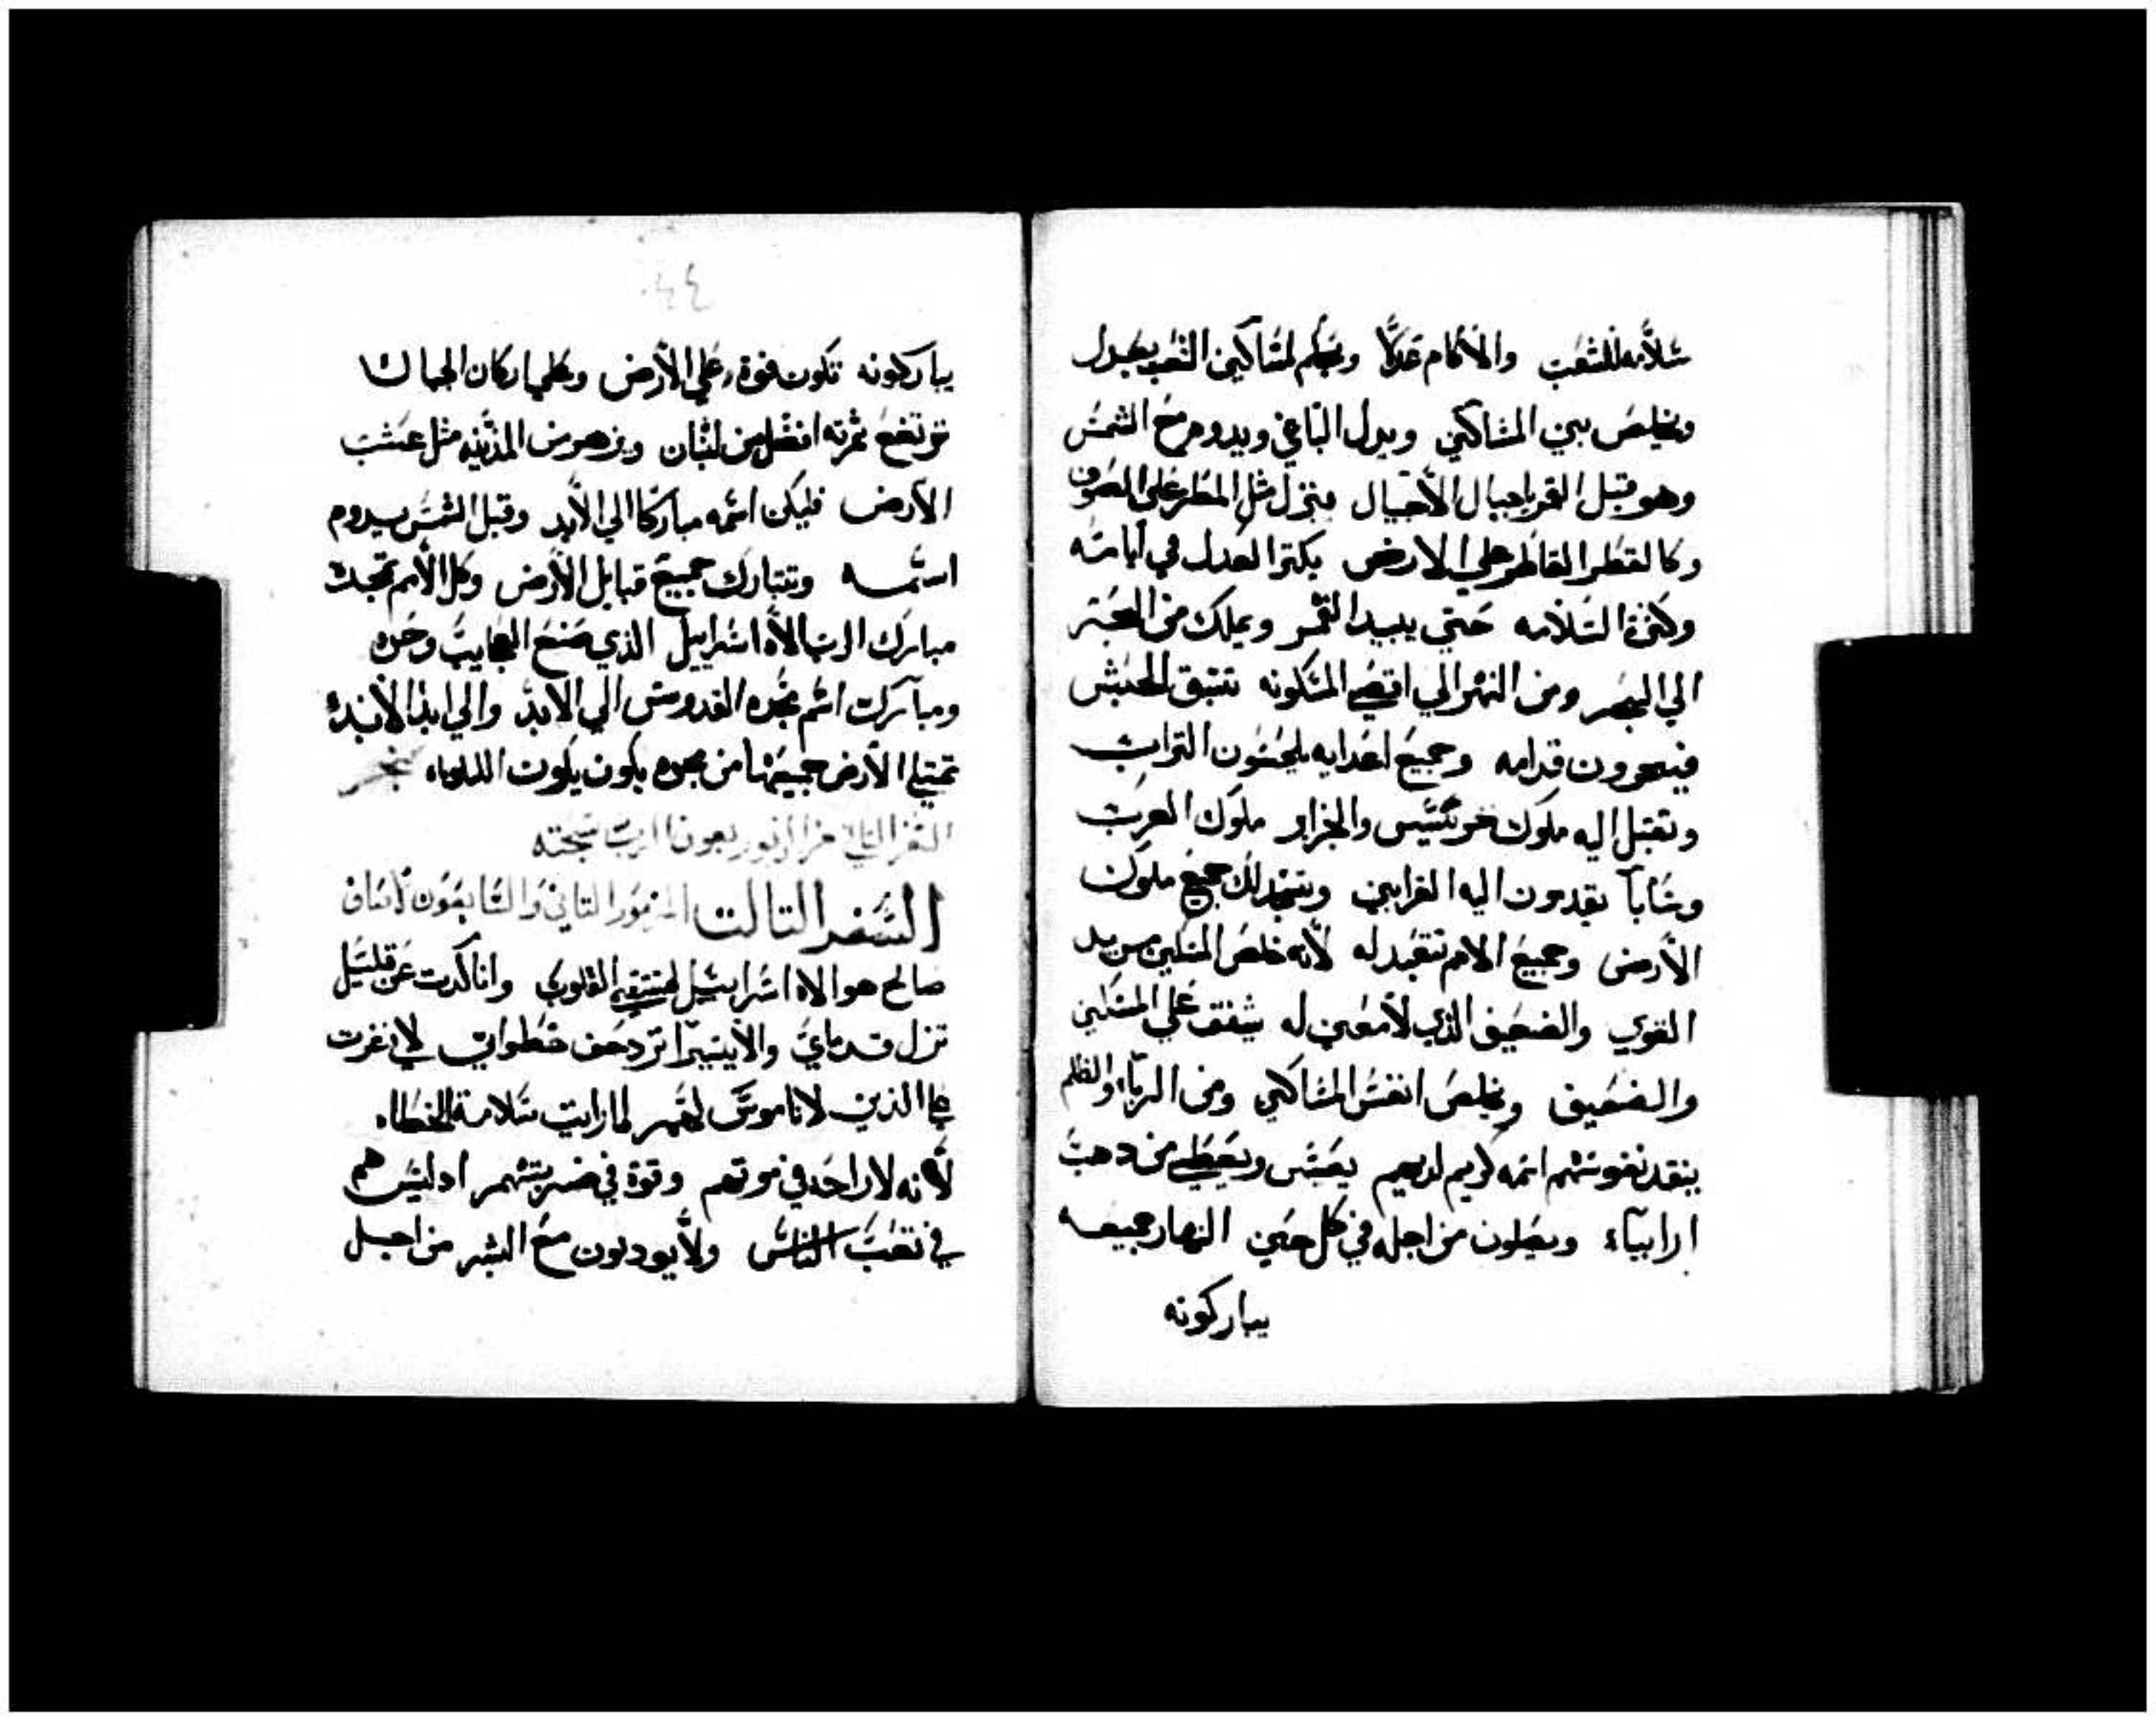 سلامه للشعب والاكام عدلا ويحكم لمساكين الشعب بعدل
ويخلص بني المساكين ويدل الباغي ويدوم مع الشمس
وهو قبل القمر اجيال الاجيال وينزل مثل المطر على الصوف
وكالقطر القاطر علي الارض يكتر العدل في ايامه
وكثرة السلامه حتي يبيد القمر ويملك من البحر
الي البحر ومن النهر الي اقصي المسكونه تسبق الحبش
فيخرون قدامه وجميع اعدايه يلحسون التراب
وتقبل اليه ملوك ترسيس والجزاير ملوك العرب
وسابا يقدمون اليه القرابين ويسجد له جميع ملوك
الارض وجميع الامم تتعبد له لانه خلص المسكين من يد
القوي والضعيف الذي لا معين له يشفق علي المسكين
والضعيف ويخلص انفس المساكين ومن الربا والظلم
ينقد نفوسهم اسمه كريم لديهم يعيش ويعطي من دهب
ارابياء ويصلون من اجله في كل حين النهار جميعه
يباركونه
٤٤
يباركونه تكون قوة علي الارض وعلي اركان الجبال
ترتفع ثمرته افضل من لبنان ويزهر من المدينه مثل عشب
الارض فليكن اسمه مباركا الي الابد وقبل الشمس يدوم
اسمه وتتبارك جميع قبايل الارض وكل الامم تمجده
مبارك الرب الاه اسراييل الذي صنع العجايب وحده
ومبارك اسم مجده القدوس الي الابد والي ابد الابد
تمتلي الارض جميعها من مجده يكون يكون الليلوياء
السفر التالت المزمور التاني والسابعون لاساف
صالح هو الاه اسراييل لمستقيمي القلوب وانا كدت عن قليل
تزل قدماي والا يسيرا تزدحف خطواتي لاني غرت
علي الذين لا ناموس لهم لما رايت سلامة الخطاه
لانه لا راحه في موتهم وقوة في ضربتهم اد ليس هم
في تعب الناس ولا يودبون مع البشر من اجل